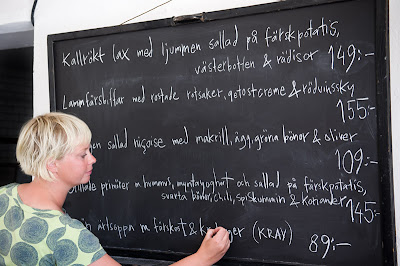 Kallrökt lax med ljummen sallad på färskpotatis,
västerbotten & rädisor 149:-
Lammfärsbiffar med rostade rotsaker, getostcreme & rödvinssky
155:-
sallad niçoise med makrill, ägg, gröna bönor & oliver
109:-
primörer m hummus, myntayoghurt och sallad på färskpotatis,
svarta bönor, chili, spiskummin & koriander 145:-
ärtsoppa m färskost & (KRAV) 89:-